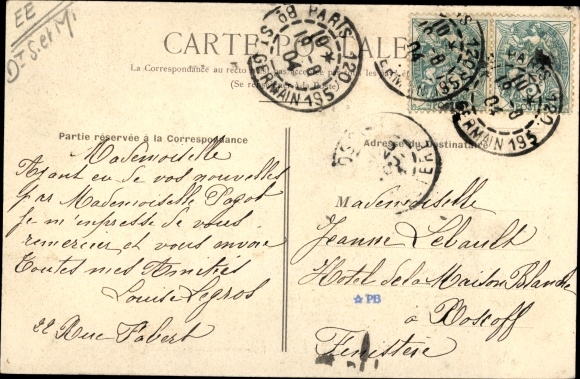 EE
Dt S. et M.
CARTE POSTALE
La Correspondance au recto
(Se re
89 PARIS 120
10 * 16-8 04
Bd St GERMAIN 195
Partie réservée à la Correspondance
Adresse du Destinataire
Mademoiselle
Ayant eu de vos nouvelles
par Mademoiselle Pagot
je m'empresse de vous
remercier et vous envoie
toutes mes Amitiés
Louise Legros
22 Rue Fabert
Mademoiselle
Jeanne Lebault
Hotel de la Maison Blanche
à Roscoff
Finistère
PB